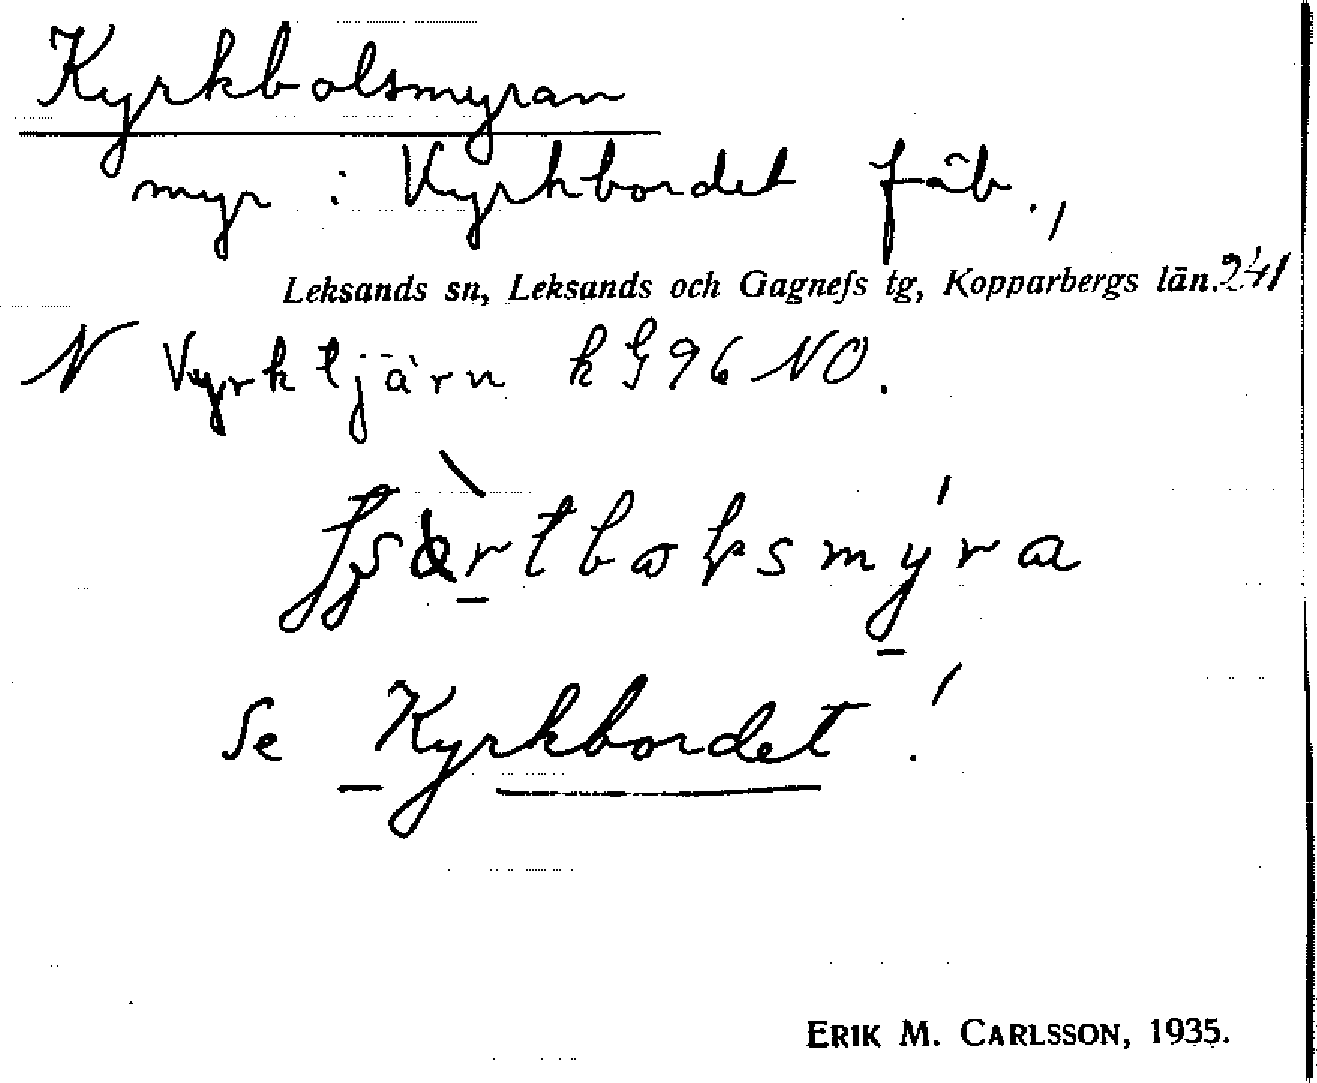 Kyrkbolsmyran
myr i Kyrkbordet fäb.,
Leksands sn, Leksands och Gagnefs tg, Kopparbergs län. 241
N Kyrktjärn k G 96 NO.
se Kyrkbordet!
ERIK M. CARLSSON, 1935.